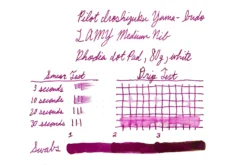 Pilot Iroshizuku Yama-budo
LAMY Medium Nib
Rhodia dot Pad, 80g, white
Smear Test
Drip Test
5 seconds
10 seconds
20 seconds
30 seconds
1 2 3
Swabs